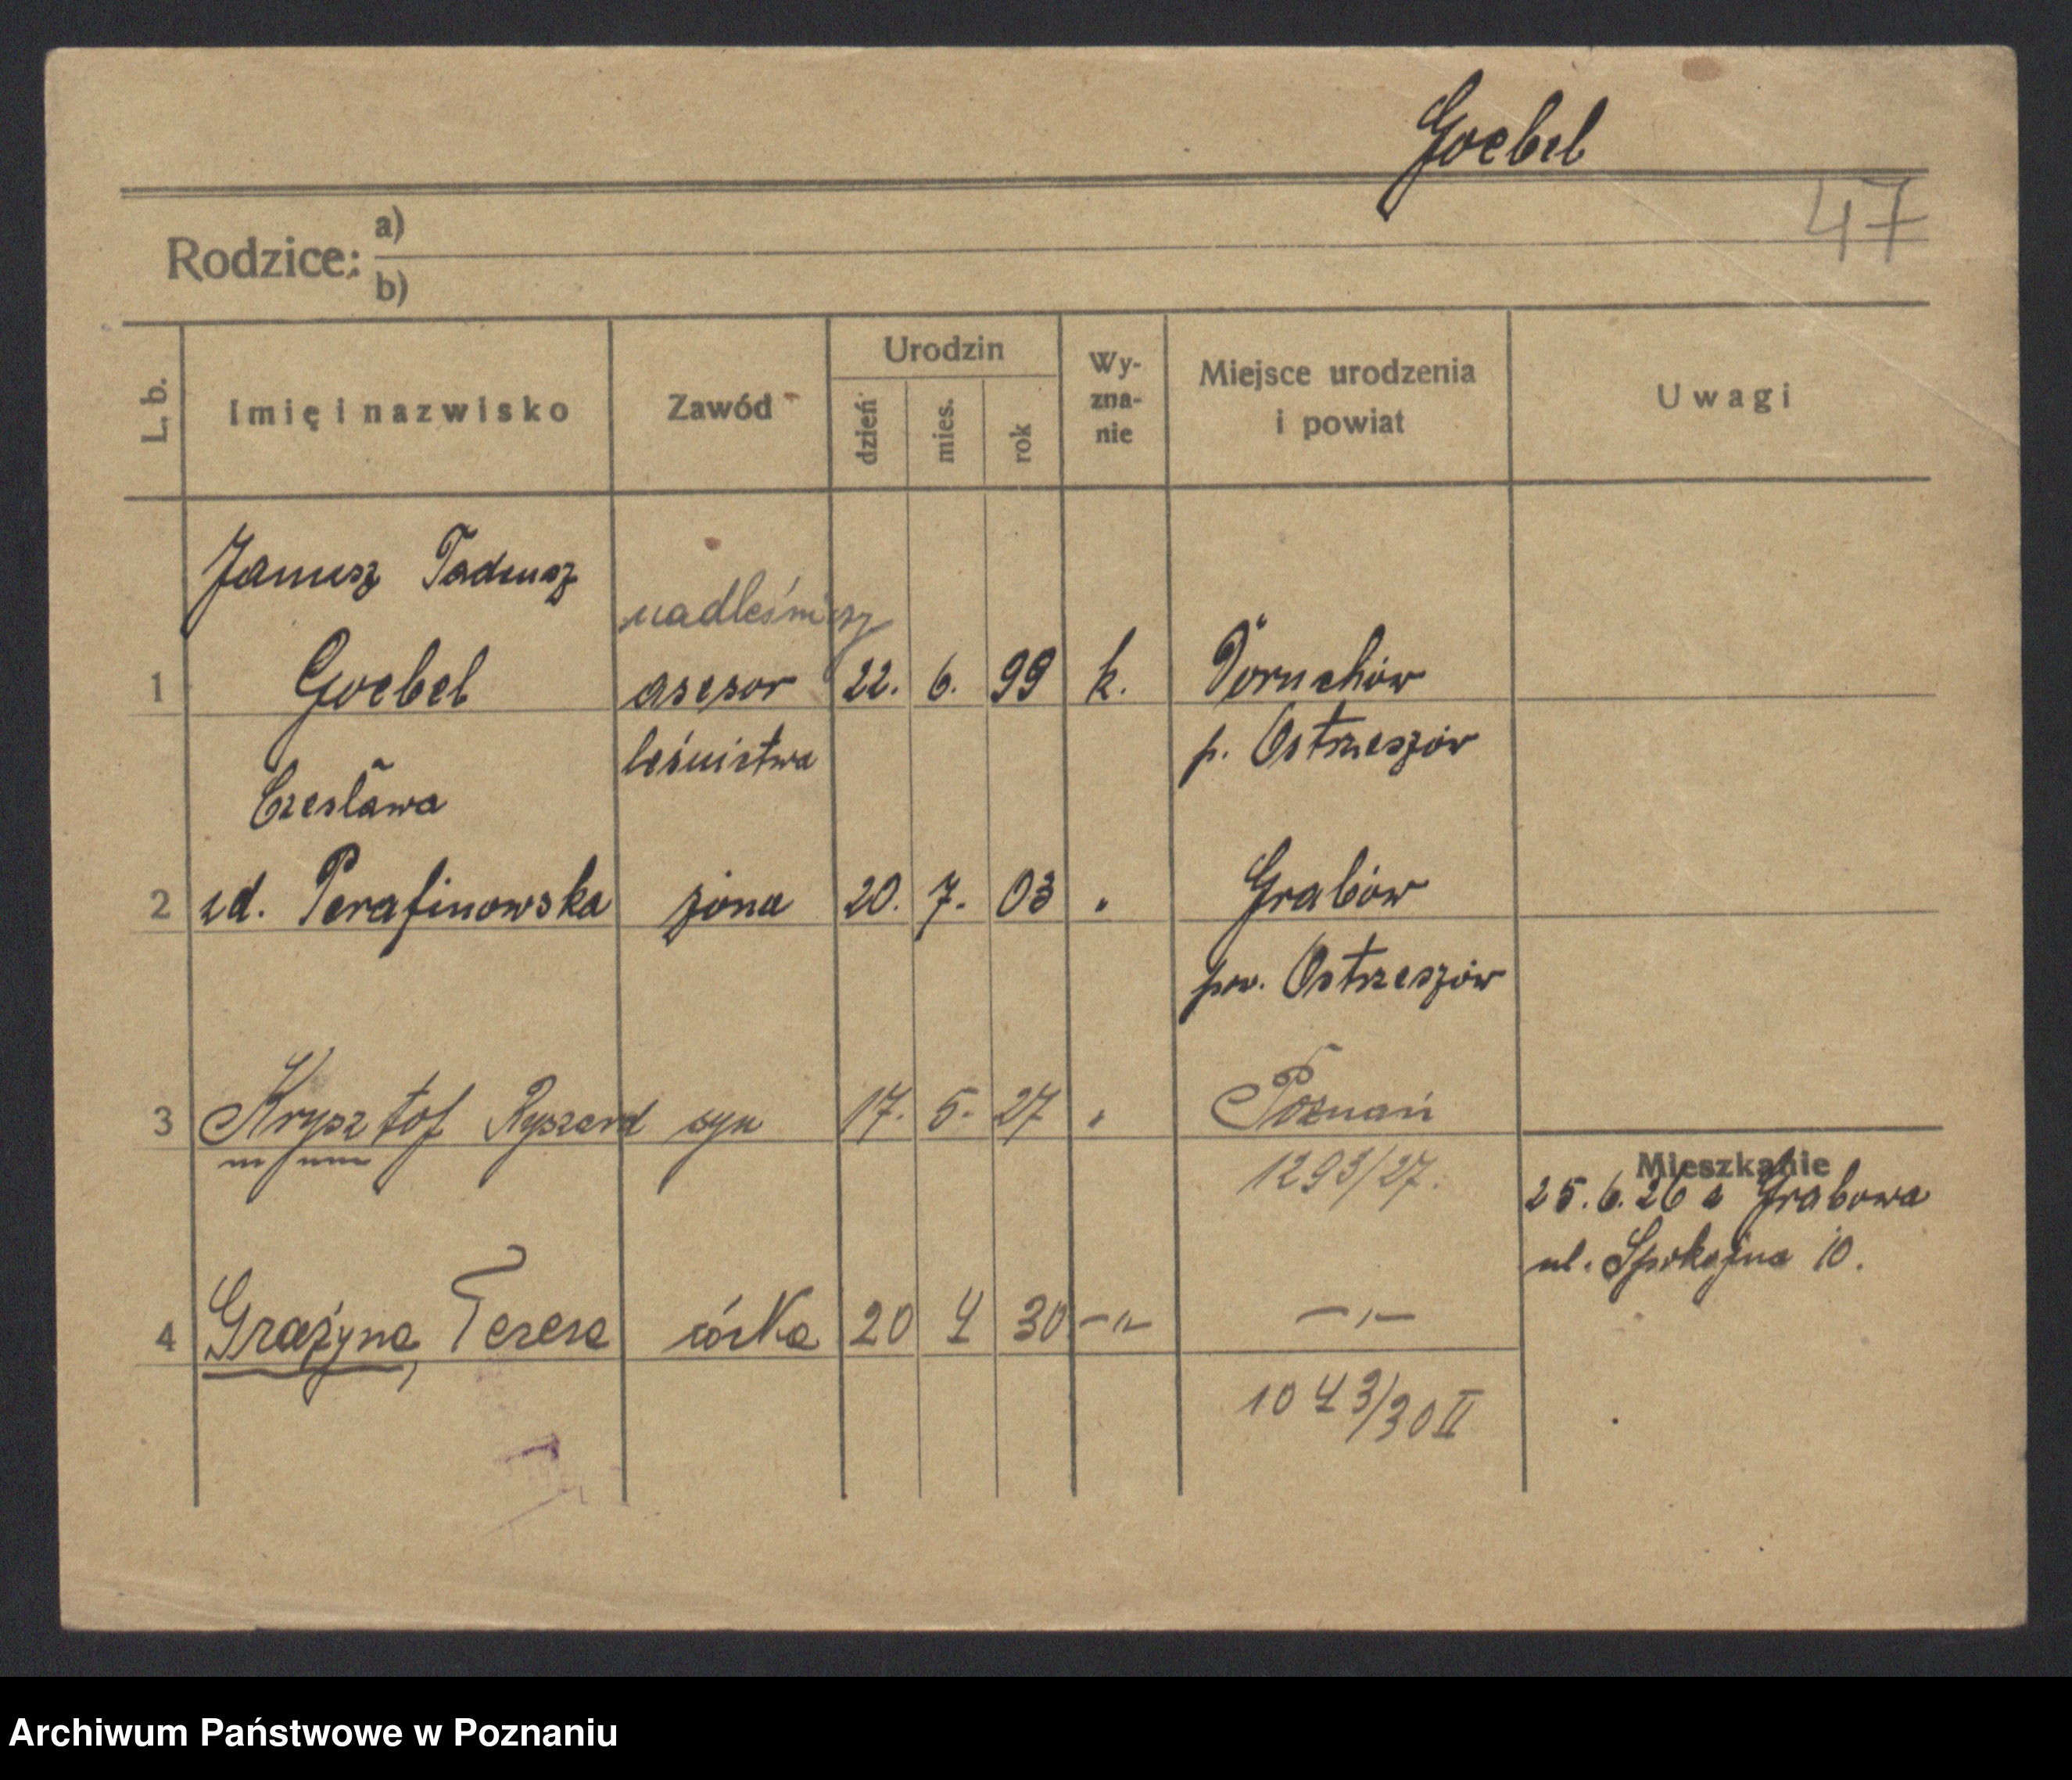 Goebel
47
Rodzice: a)
b)
L. b. Imię i nazwisko Zawód Urodzin dzień mies. rok Wy-zna-nie Miejsce urodzenia i powiat Uwagi
Janusz Tadeusz
nadleśniczy
1 Goebel asesor 22. 6. 99 k. Doruchów
leśnictwa p. Ostrzeszów
Czesława
2 zd. Serafinowska żona 20. 7. 03 " Grabów
pow. Ostrzeszów
3 Krysztof Ryszard syn 17. 5. 27 " Poznań
1293/27.
Mieszkanie
25. 6. 26 z Grabowa
ul. Spokojna 10.
4 Grażyna, Teresa córka 20 4 30 -"- -"-
1043/30 II
Archiwum Państwowe w Poznaniu